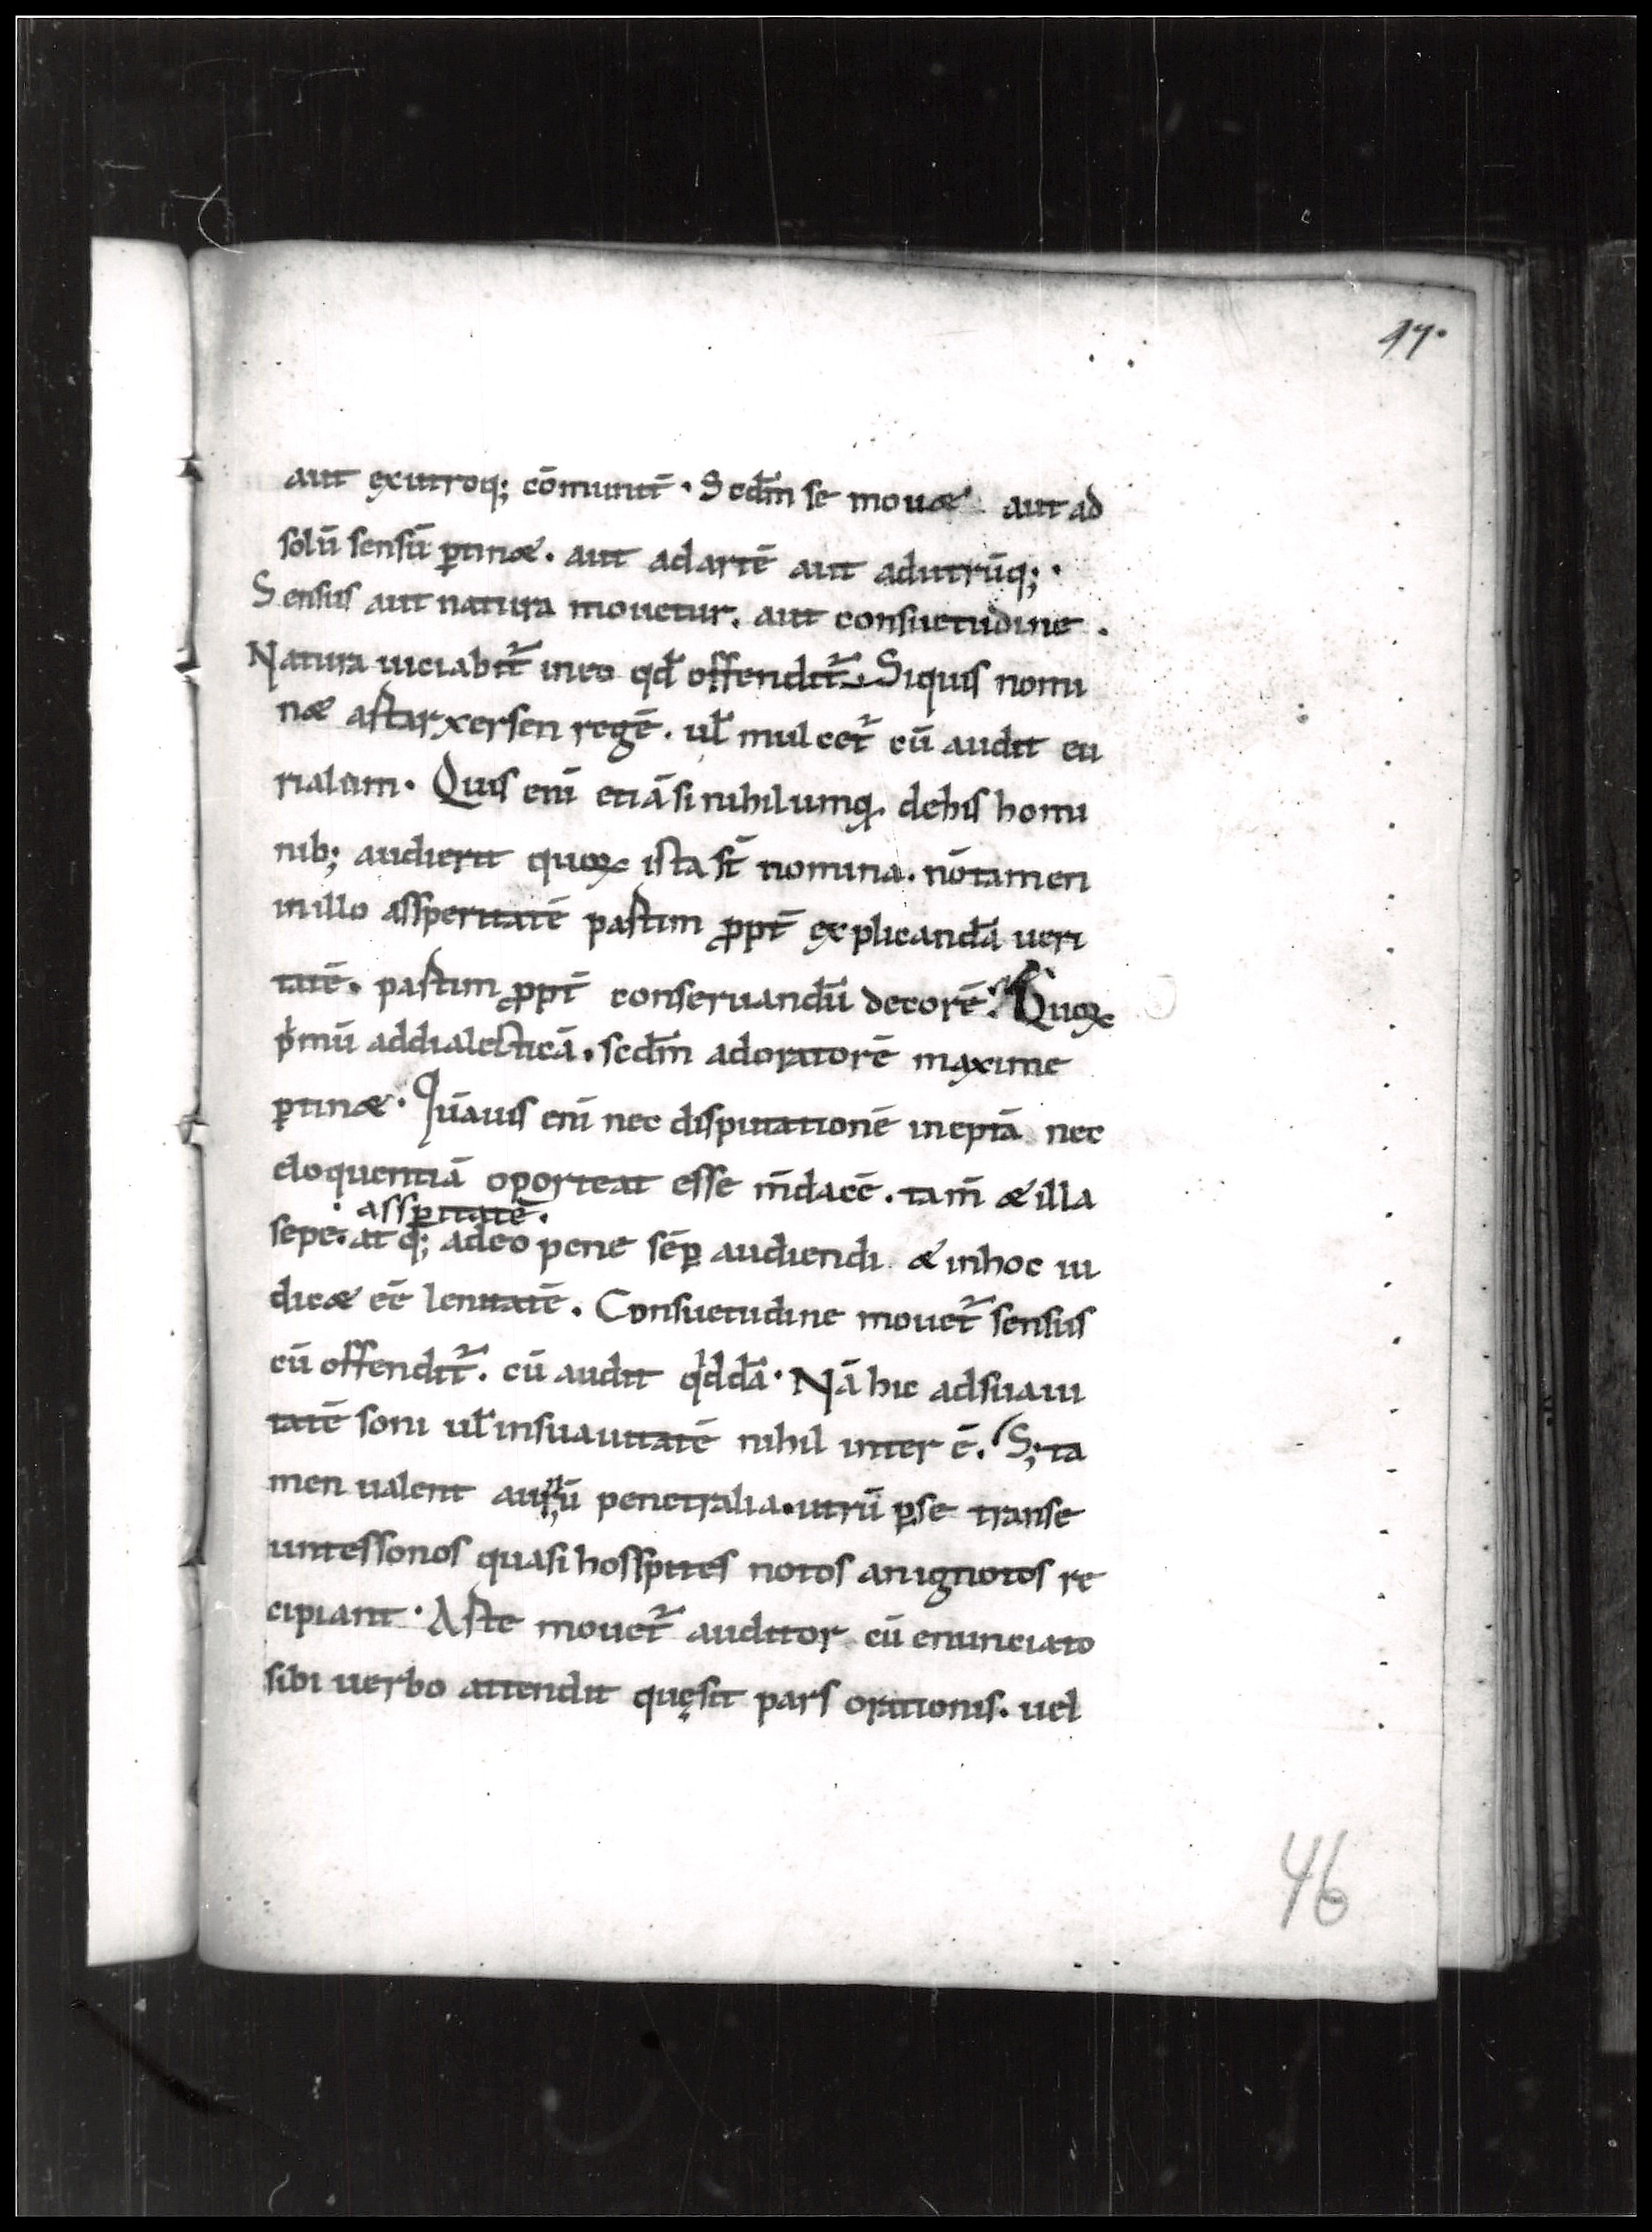 47.
aut exutroq; cōmunit̄. Scdm̄ se mouæ aut ad
solū sensū ꝑtinæ. aut adartē aut adutrūq;.
Sensus aut natura mouetur. aut consuetudine.
Natura uiciabit᷑ ineo qđ offendit᷑. Siquis nomi
næ astarxersen regē. ul̄ mulcet᷑ cū audit eu
rialum. Quis enī etiāsi nihilumq. dehis homi
nib; audierit quoꝝ ista st̄ nomina. nōtamen
inillo assperitatē pastim ꝓpt̄ explicandā ueri
tatē. pastim ꝓpt̄ conseruandū decorē. Quoꝝ
pͥmū addialecticā. scdm̄ adoratorē maxime
ꝑtinæ. Quāuis enī nec disputationē ineptā nec
eloquentiā oporteat esse m̄dacē. tam̄ & illa
assꝑitatē.
sepe. atq; adeo pene sēꝑ audiendi & inhoc iu
dicæ eē lenitatē. Consuetudine mouet᷑ sensus
cū offendit᷑. cū audit qͥddā. Nā hic adsuaui
tatē soni ul̄ insuauitatē nihil inter ē. S; ta
men ualent auriū penetralia. utrū ꝑse transe
untessonos quasi hosspites notos anignotos re
cipiant. Aste mouet᷑ auditor cū enunciato
sibi uerbo attendit quęsit pars orationis. uel
46